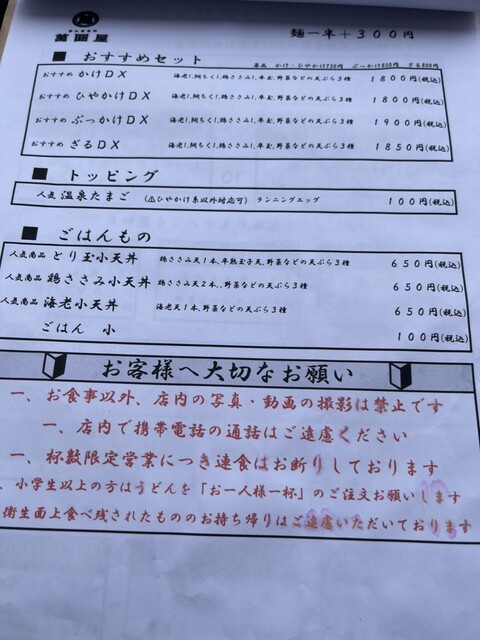 萬田屋
麺一半+300円
■ おすすめセット
単品 かけ・ひやかけ730円 ぶっかけ830円 ざる800円
おすすめ かけDX 海老1,鯛ちく1,鶏ささみ1,半玉,野菜などの天ぷら3種 1800円(税込)
おすすめ ひやかけDX 海老1,鯛ちく1,鶏ささみ1,半玉,野菜などの天ぷら3種 1800円(税込)
おすすめ ぶっかけDX 海老1,鯛ちく1,鶏ささみ1,半玉,野菜などの天ぷら3種 1900円(税込)
おすすめ ざるDX 海老1,鯛ちく1,鶏ささみ1,半玉,野菜などの天ぷら3種 1850円(税込)
■ トッピング
人気 温泉たまご (⚠ひやかけ系以外対応可) ランニングエッグ 100円(税込)
■ ごはんもの
人気商品 とり玉小天丼 鶏ささみ天1本、半熟玉子天、野菜などの天ぷら3種 650円(税込)
人気商品 鶏ささみ小天丼 鶏ささみ天2本、、野菜などの天ぷら3種 650円(税込)
人気商品 海老小天丼 海老天1本、野菜などの天ぷら3種 650円(税込)
ごはん 小 100円(税込)
お客様へ大切なお願い
一、お食事以外、店内の写真・動画の撮影は禁止です
一、店内で携帯電話の通話はご遠慮ください
一、杯数限定営業につき連食はお断りしております
、小学生以上の方はうどんを「お一人様一杯」のご注文お願いします
衛生面上食べ残されたもののお持ち帰りはご遠慮いただいております